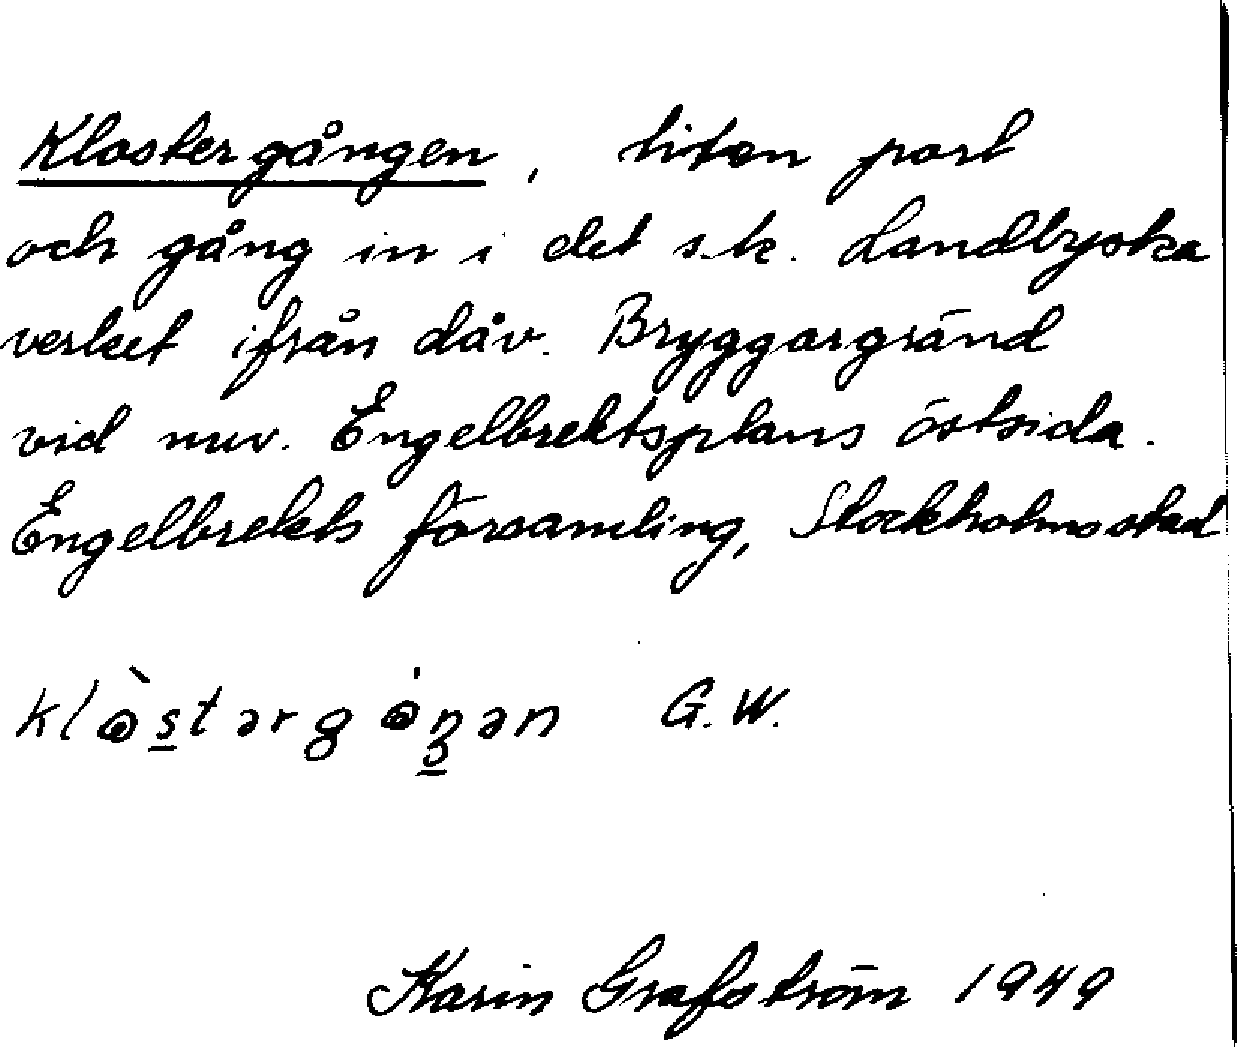 Klostergången, liten port
och gång in i det s.k. Landbyska
verket ifrån dåv. Bryggargränd
vid nuv. Engelbrektsplans östsida.
Engelbrekts församling, Stockholms stad
G.W.
Karin Grafström 1949